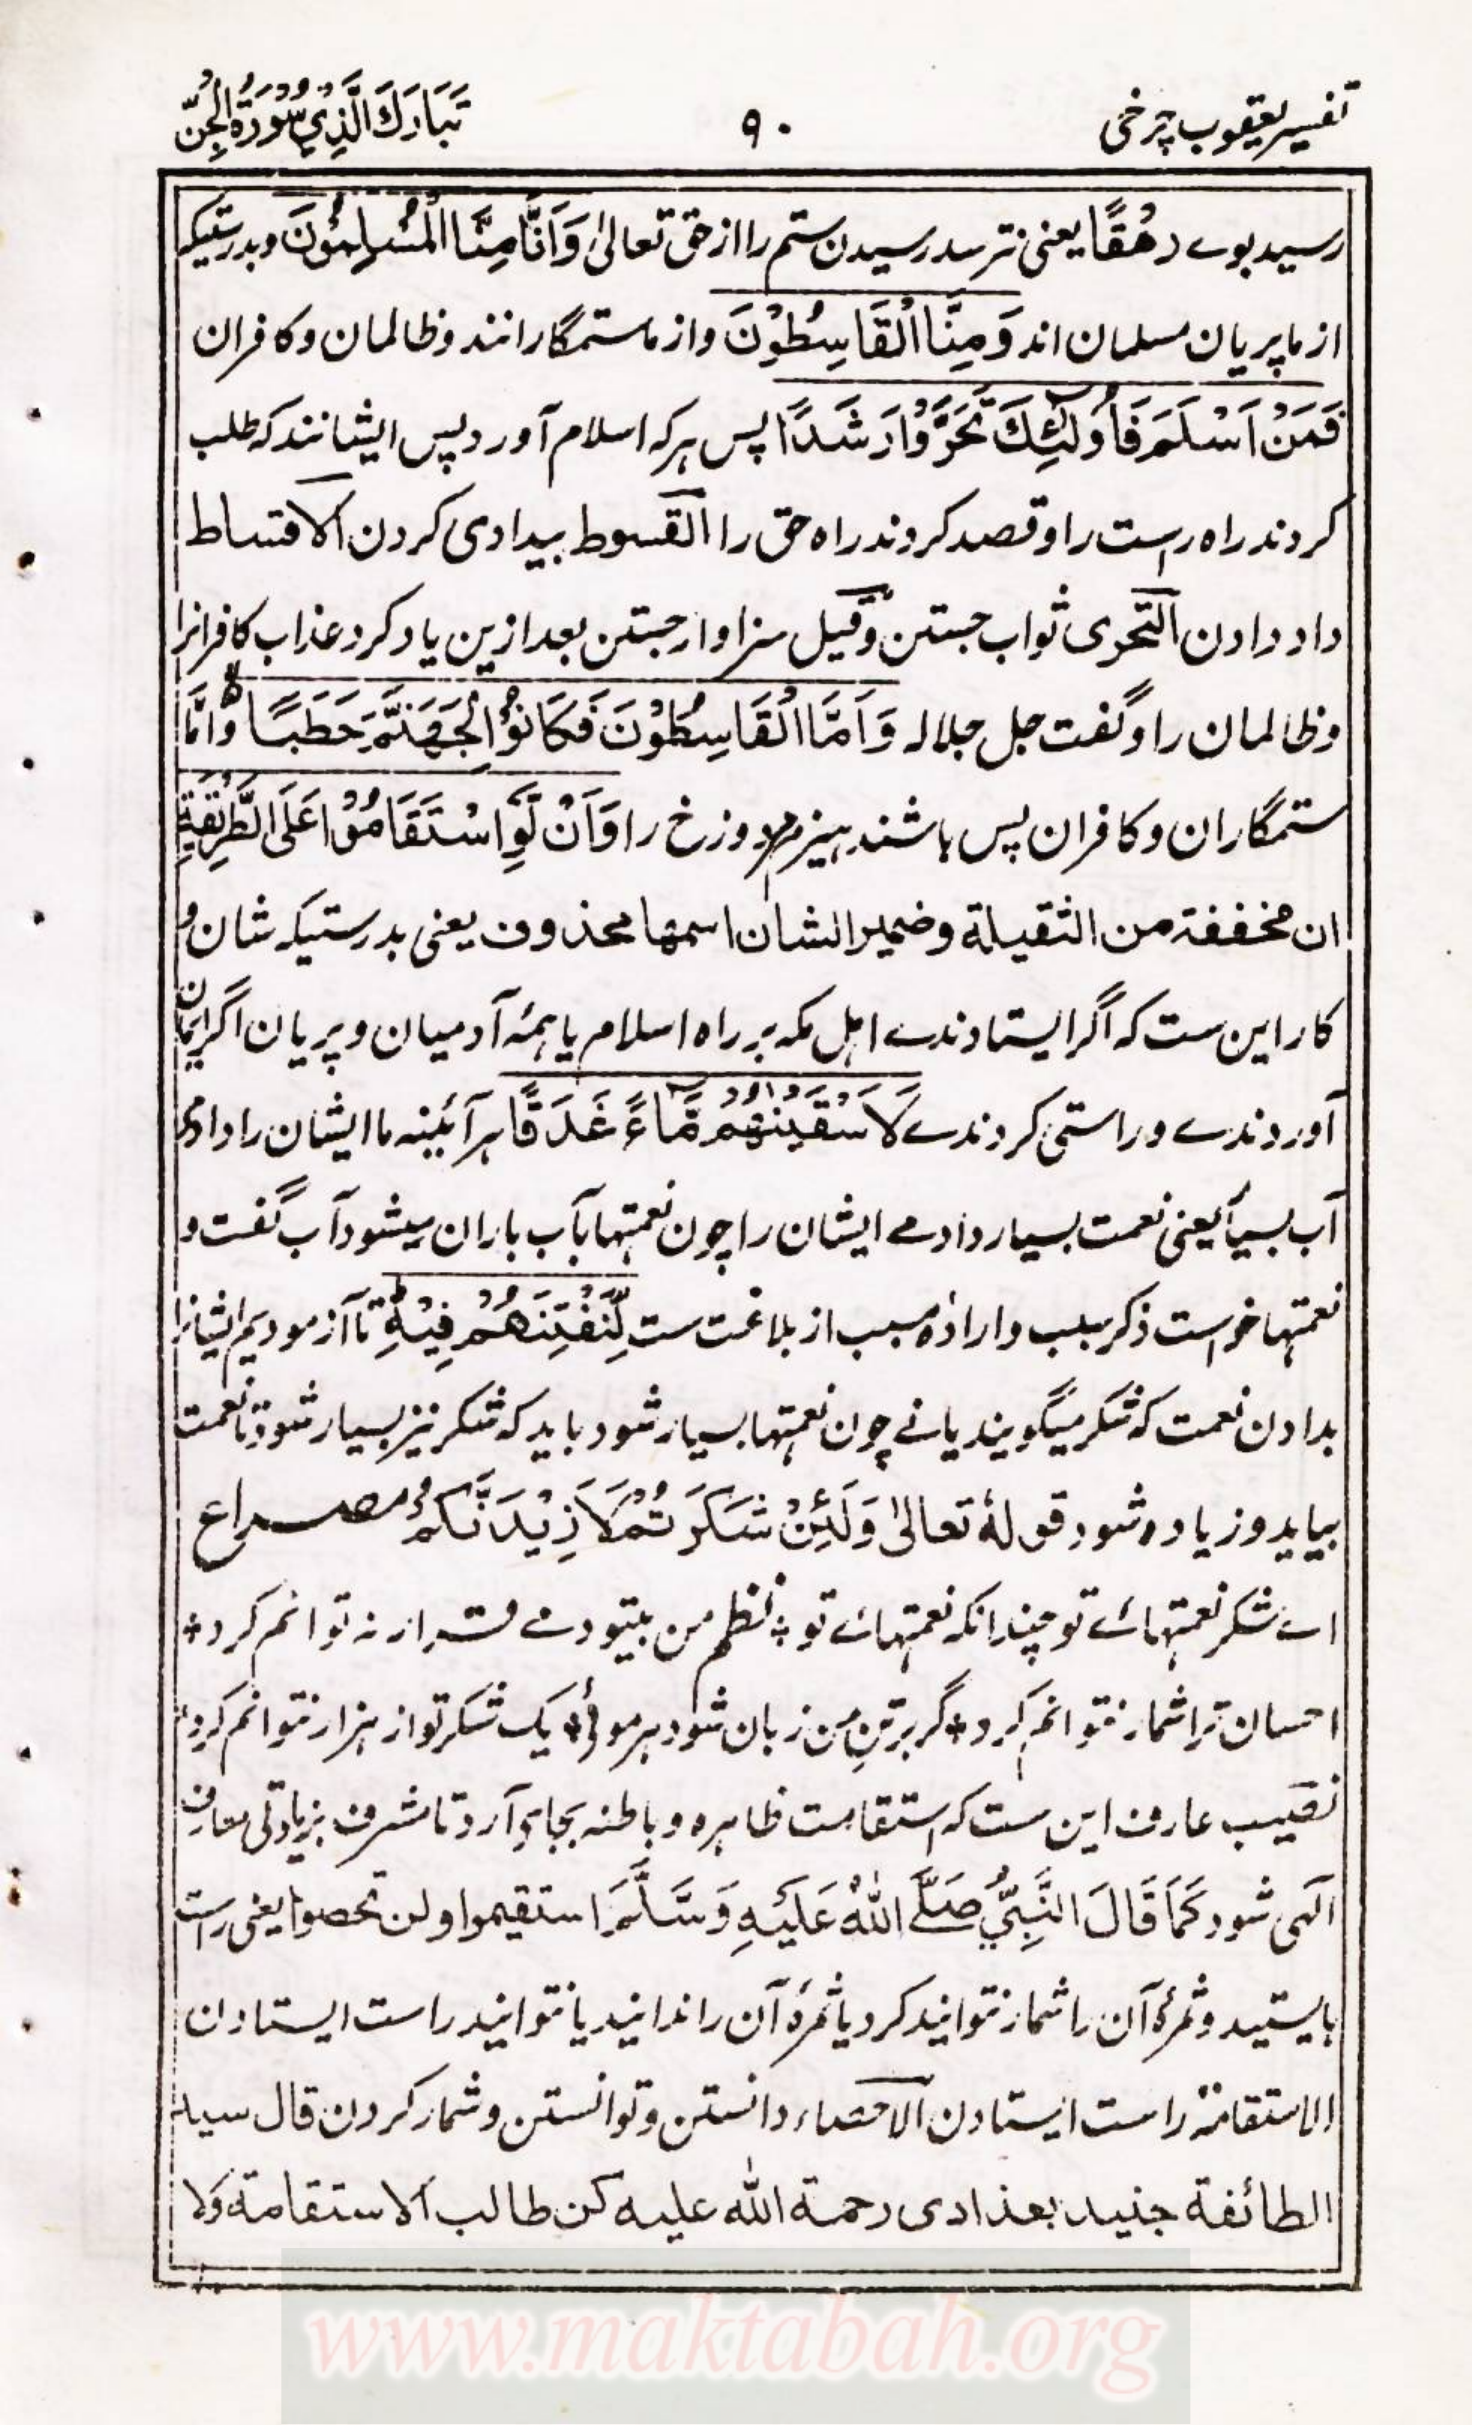 تفسیر یعقوب چرخی ۹۰ تَبَارَكَ الَّذِيْ سُوْرَةُ الْجِنّ
رسید بوے رَهَقًا یعنی نترسد رسیدن ستم را از حق تعالیٰ وَاَنَّا مِنَّا الْمُسْلِمُوْنَ وبدرستیکہ
از ما پریان مسلمان اند وَمِنَّا الْقَاسِطُوْنَ واز ما ستمگارانند وظالمان وکافران
فَمَنْ اَسْلَمَ فَاُولٰٓئِكَ تَحَرَّوْا رَشَدًا پس ہرکہ اسلام آورد پس ایشانند کہ طلب
کردند راہ راست را وقصد کردند راہ حق را القسوط بیدادی کردن الاقساط
داد دادن التحری ثواب جستن وقیل سزاوار جستن بعد ازین یاد کرد عذاب کافرانرا
وظالمان را وگفت جل جلالہ وَاَمَّا الْقَاسِطُوْنَ فَكَانُوْا لِجَهَنَّمَ حَطَبًا وامّا
ستمگاران وکافران پس باشند ہیزم مر دوزخ را وَاَنْ لَّوِ اسْتَقَامُوْا عَلَى الطَّرِيْقَةِ
ان مخففة من الثقيلة وضمير الشان اسمها محذوف یعنی بدرستیکہ شان و
کار این ست کہ اگر ایستادندے اہل مکہ بر راہ اسلام یا ہمہٴ آدمیان وپریان اگر ایمان
آوردندے وراستی کردندے لَاَسْقَيْنٰهُمْ مَّآءً غَدَقًا ہر آئینہ ما ایشان را دادمی
آب بسیار یعنی نعمت بسیار دادمے ایشان را چون نعمتہا بآب باران میشود آب گفت و
نعمتہا خواست ذکر سبب وارادہٴ مسبب از بلاغت ست لِّنَفْتِنَهُمْ فِيْهِ تا آزمودیم ایشانرا
بدادن نعمت کہ شکر میگویند یا نے چون نعمتہا بسیار شود باید کہ شکر نیز بسیار شود تا نعمت
بیاید وزیادہ شود قولہٗ تعالیٰ وَلَئِنْ شَكَرْتُمْ لَاَزِيْدَنَّكُمْ مصراع
اے شکر نعمتہائے تو چندانکہ نعمتہائے تو ٭ نظم من بیتو دمے قرار نہ توانم کرد ٭
احسان ترا شمار نتوانم کرد ٭ گر برتن من زبان شود ہر موئی ٭ یک شکر تو از ہزار نتوانم کرد ٭
نصیب عارف این ست کہ استقامت ظاہرہ وباطنہ بجای آرد تا مشرف بزیادتی معارف
الٰہی شود كَمَا قَالَ النَّبِيُّ صَلَّى اللّٰهُ عَلَيْهِ وَسَلَّمَ استقيموا ولن تحصوا یعنی راست
بایستید وثمرہٴ آن را شمار نتوانید کرد یا ثمرہٴ آن را ندانید یا نتوانید راست ایستادن
الاستقامة راست ایستادن الاحصاء دانستن وتوانستن وشمار کردن قال سید
الطائفة جنید بغدادی رحمة الله عليه کن طالب الاستقامة ولا
www.maktabah.org